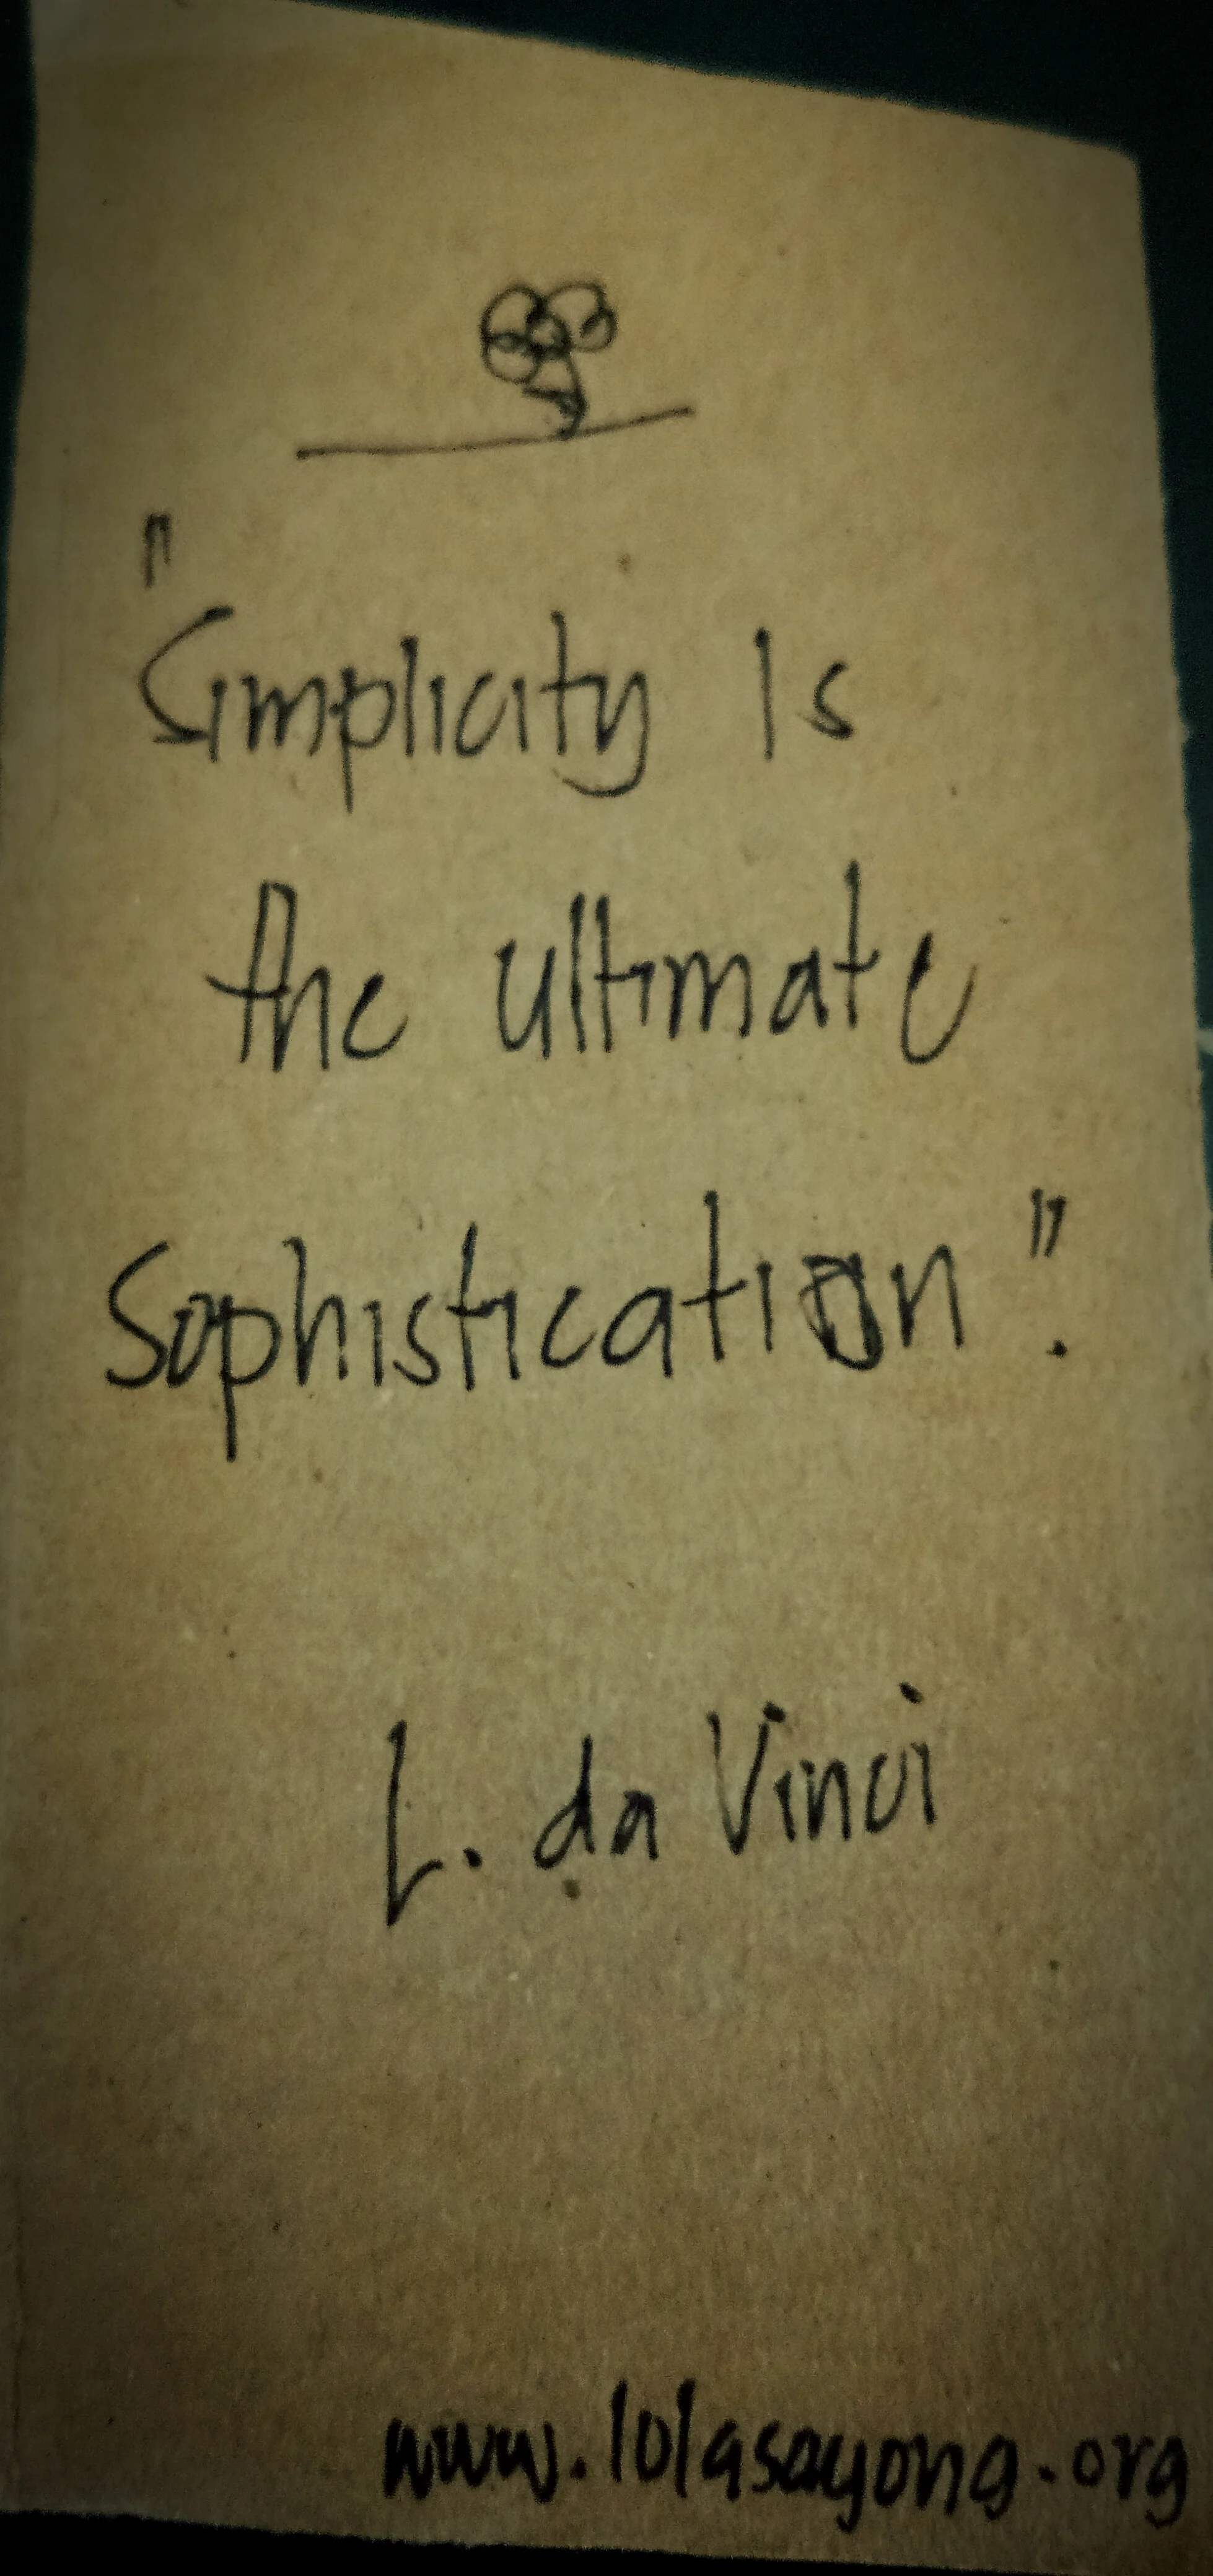 "Simplicity is
the ultimate
Sophistication".
L. da Vinci
www.lolasayong.org